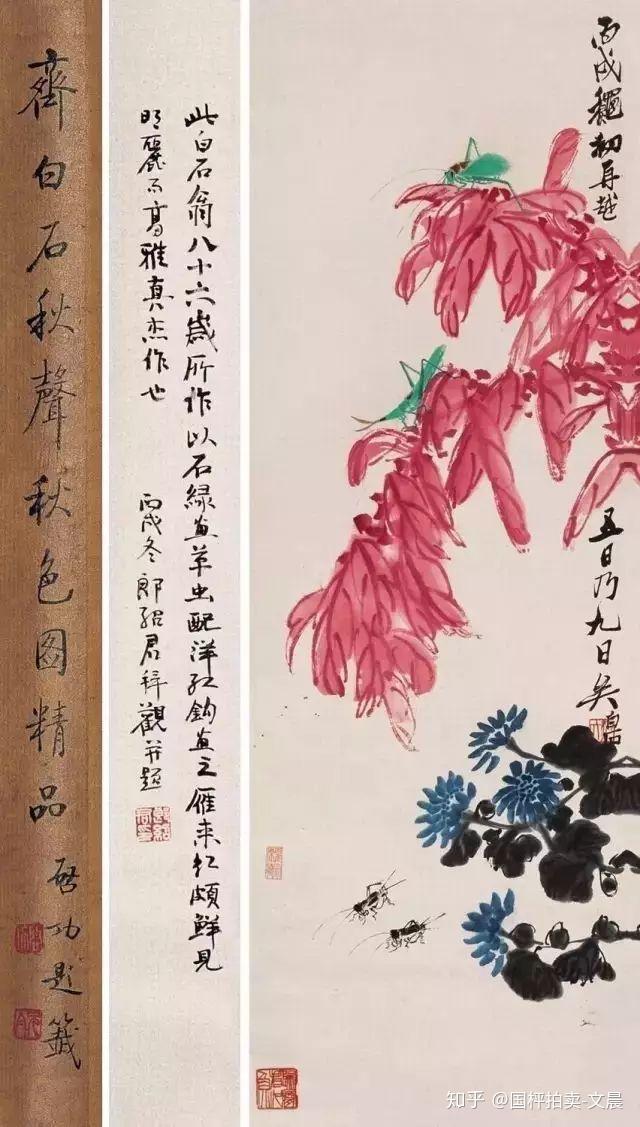 齊白石秋聲秋色圖精品
啓功題籤
此白石翁八十六歲所作以石緑畫草虫配洋紅鈎畫之雁来紅頗鮮見
明麗而高雅真杰作也
丙戌冬郎紹君拜觀并題
丙戌龝初再越
五日乃九日矣
知乎 @国枰拍卖-文晨